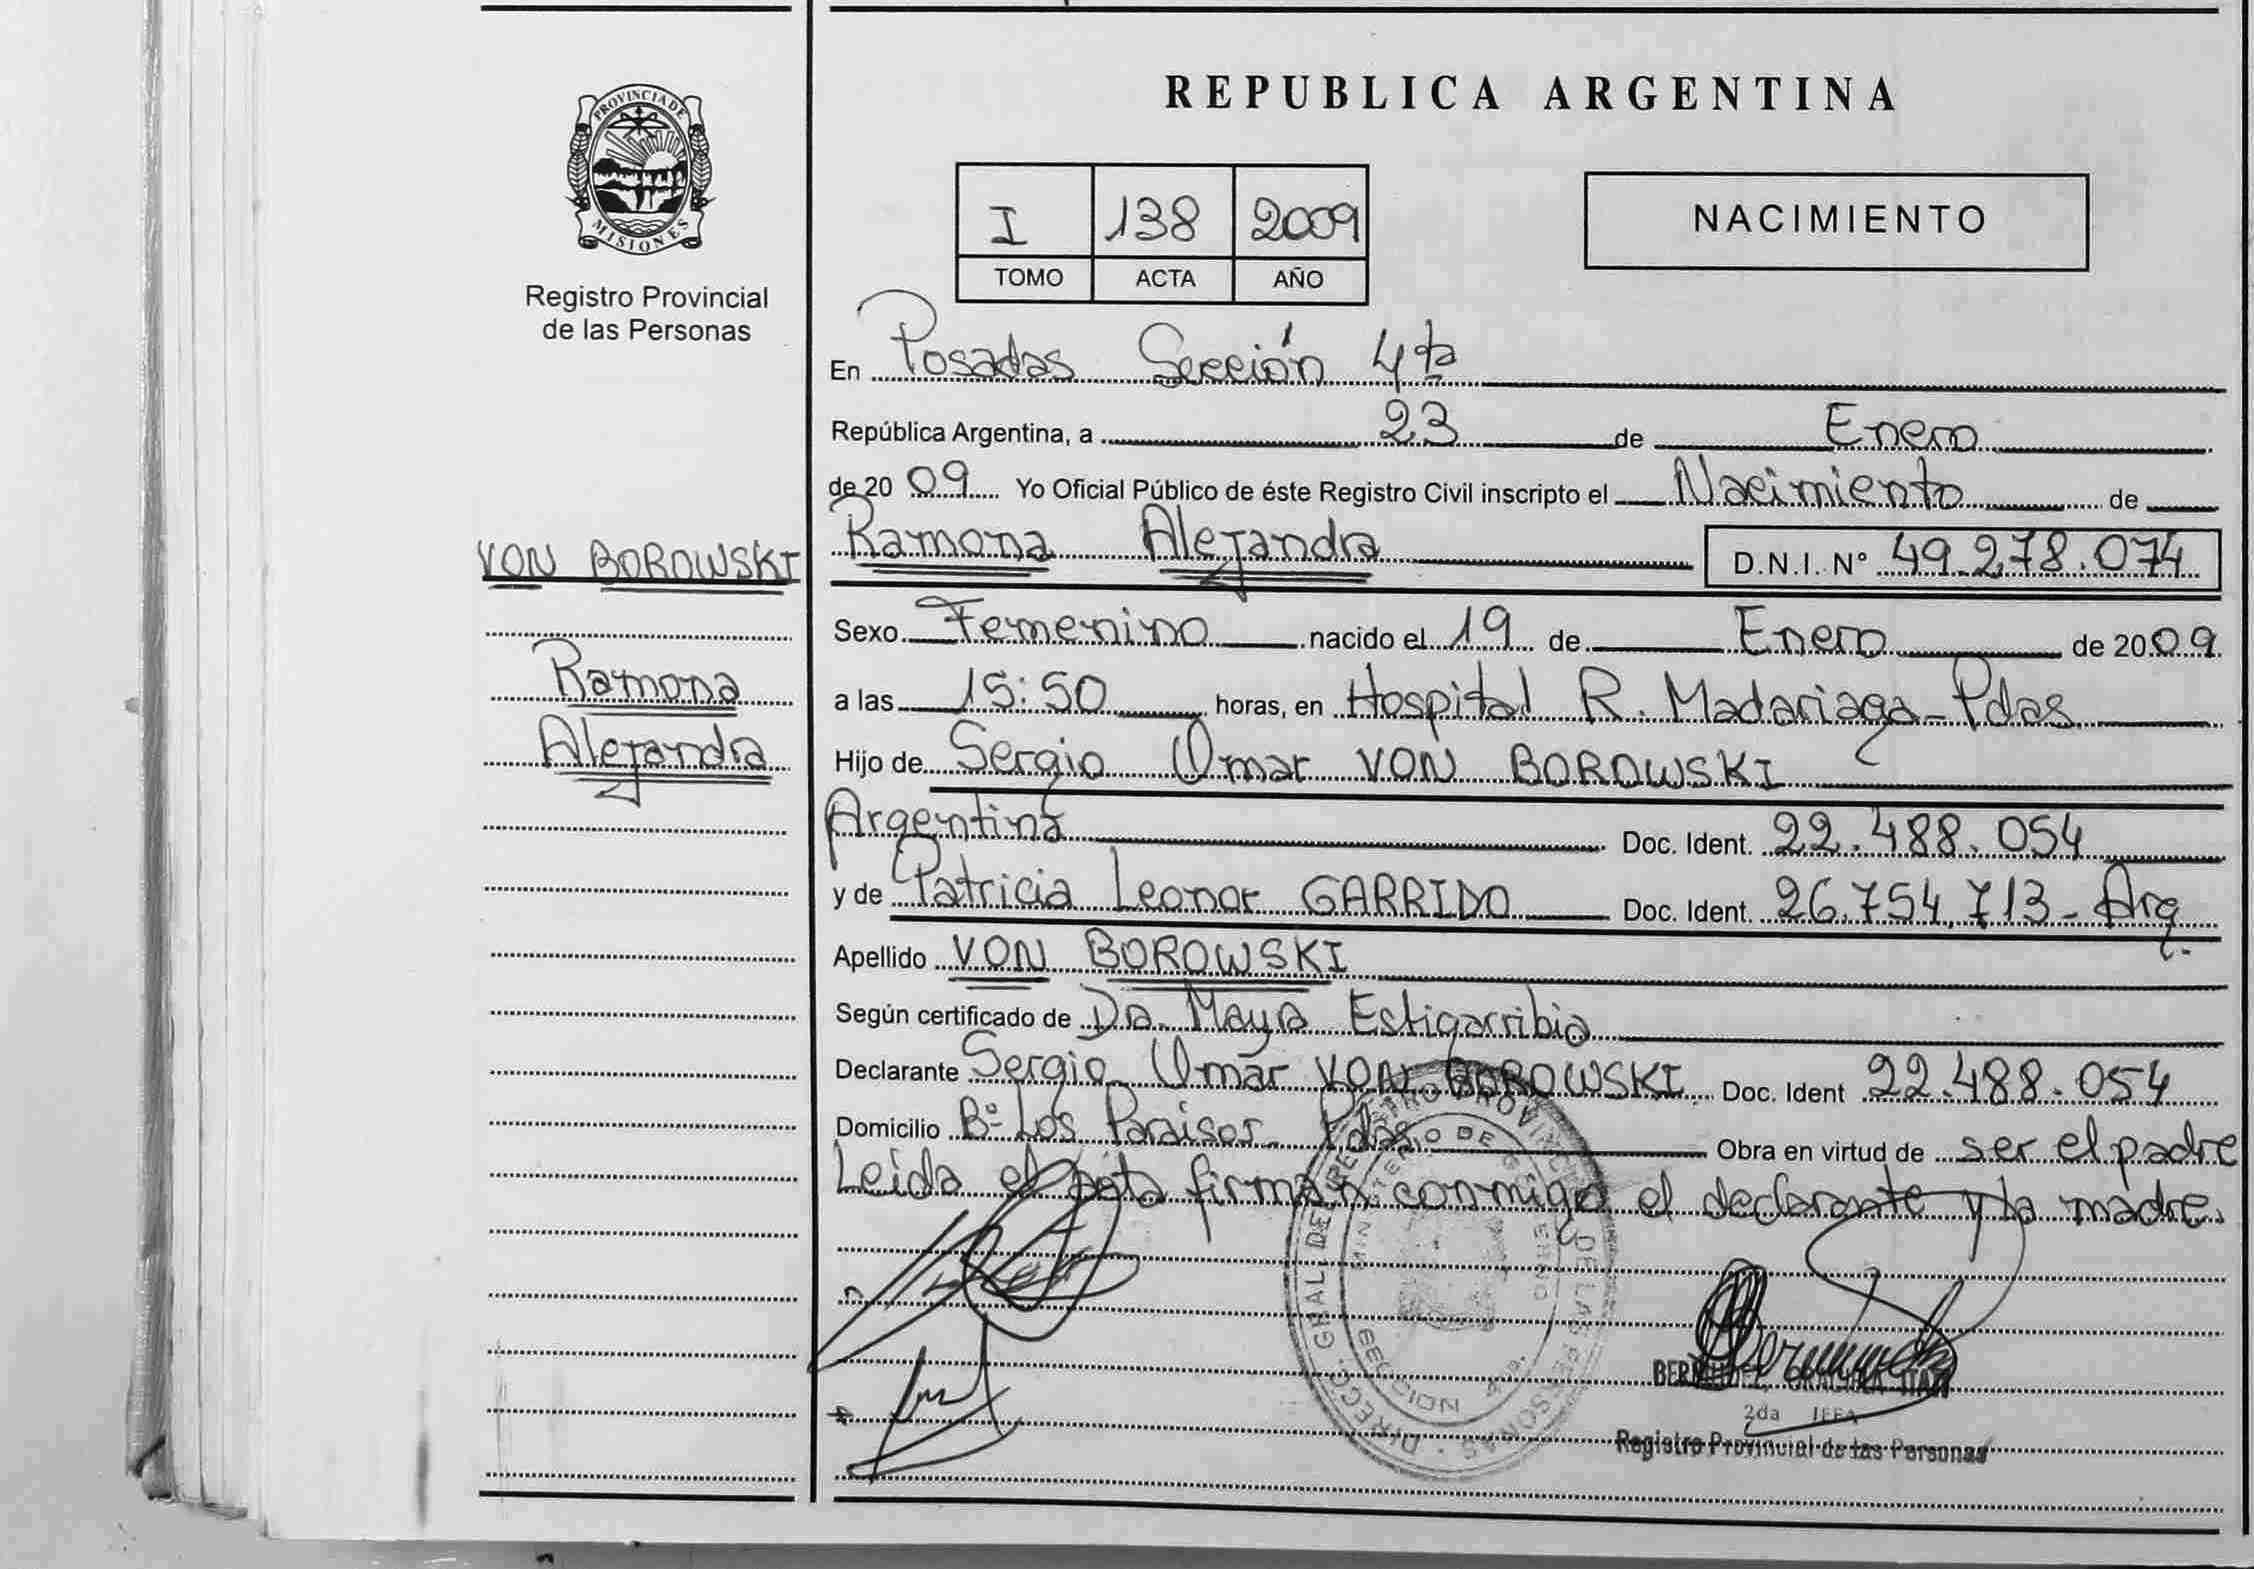 REPUBLICA ARGENTINA
PROVINCIA DE
MISIONES
Registro Provincial
de las Personas
I 138 2009
TOMO ACTA AÑO
NACIMIENTO
En Posadas Sección 4ta
República Argentina, a 23 de Enero
de 2009 Yo Oficial Público de éste Registro Civil inscripto el Nacimiento de
VON BOROWSKI
Ramona
Alejandra
Ramona Alejandra D.N.I. Nº 49.278.074
Sexo Femenino nacido el 19 de Enero de 2009
a las 15:50 horas, en Hospital R. Madariaga - Pdas
Hijo de Sergio Omar VON BOROWSKI
Argentina Doc. Ident. 22.488.054
y de Patricia Leonor GARRIDO Doc. Ident. 26.754.713 - Arg.
Apellido VON BOROWSKI
Según certificado de Dra. Mayra Estigarribia
Declarante Sergio Omar VON BOROWSKI Doc. Ident 22.488.054
Domicilio Bº Los Paraisos - Pdas Obra en virtud de ser el padre
Leida el acta firman conmigo el declarante y la madre.
DIRECC. GRAL. DE REGISTRO PROVINCIAL DE LAS PERSONAS
MINISTERIO DE GOBIERNO
SECCION 4ta.
2da JEFA
Registro Provincial de las Personas